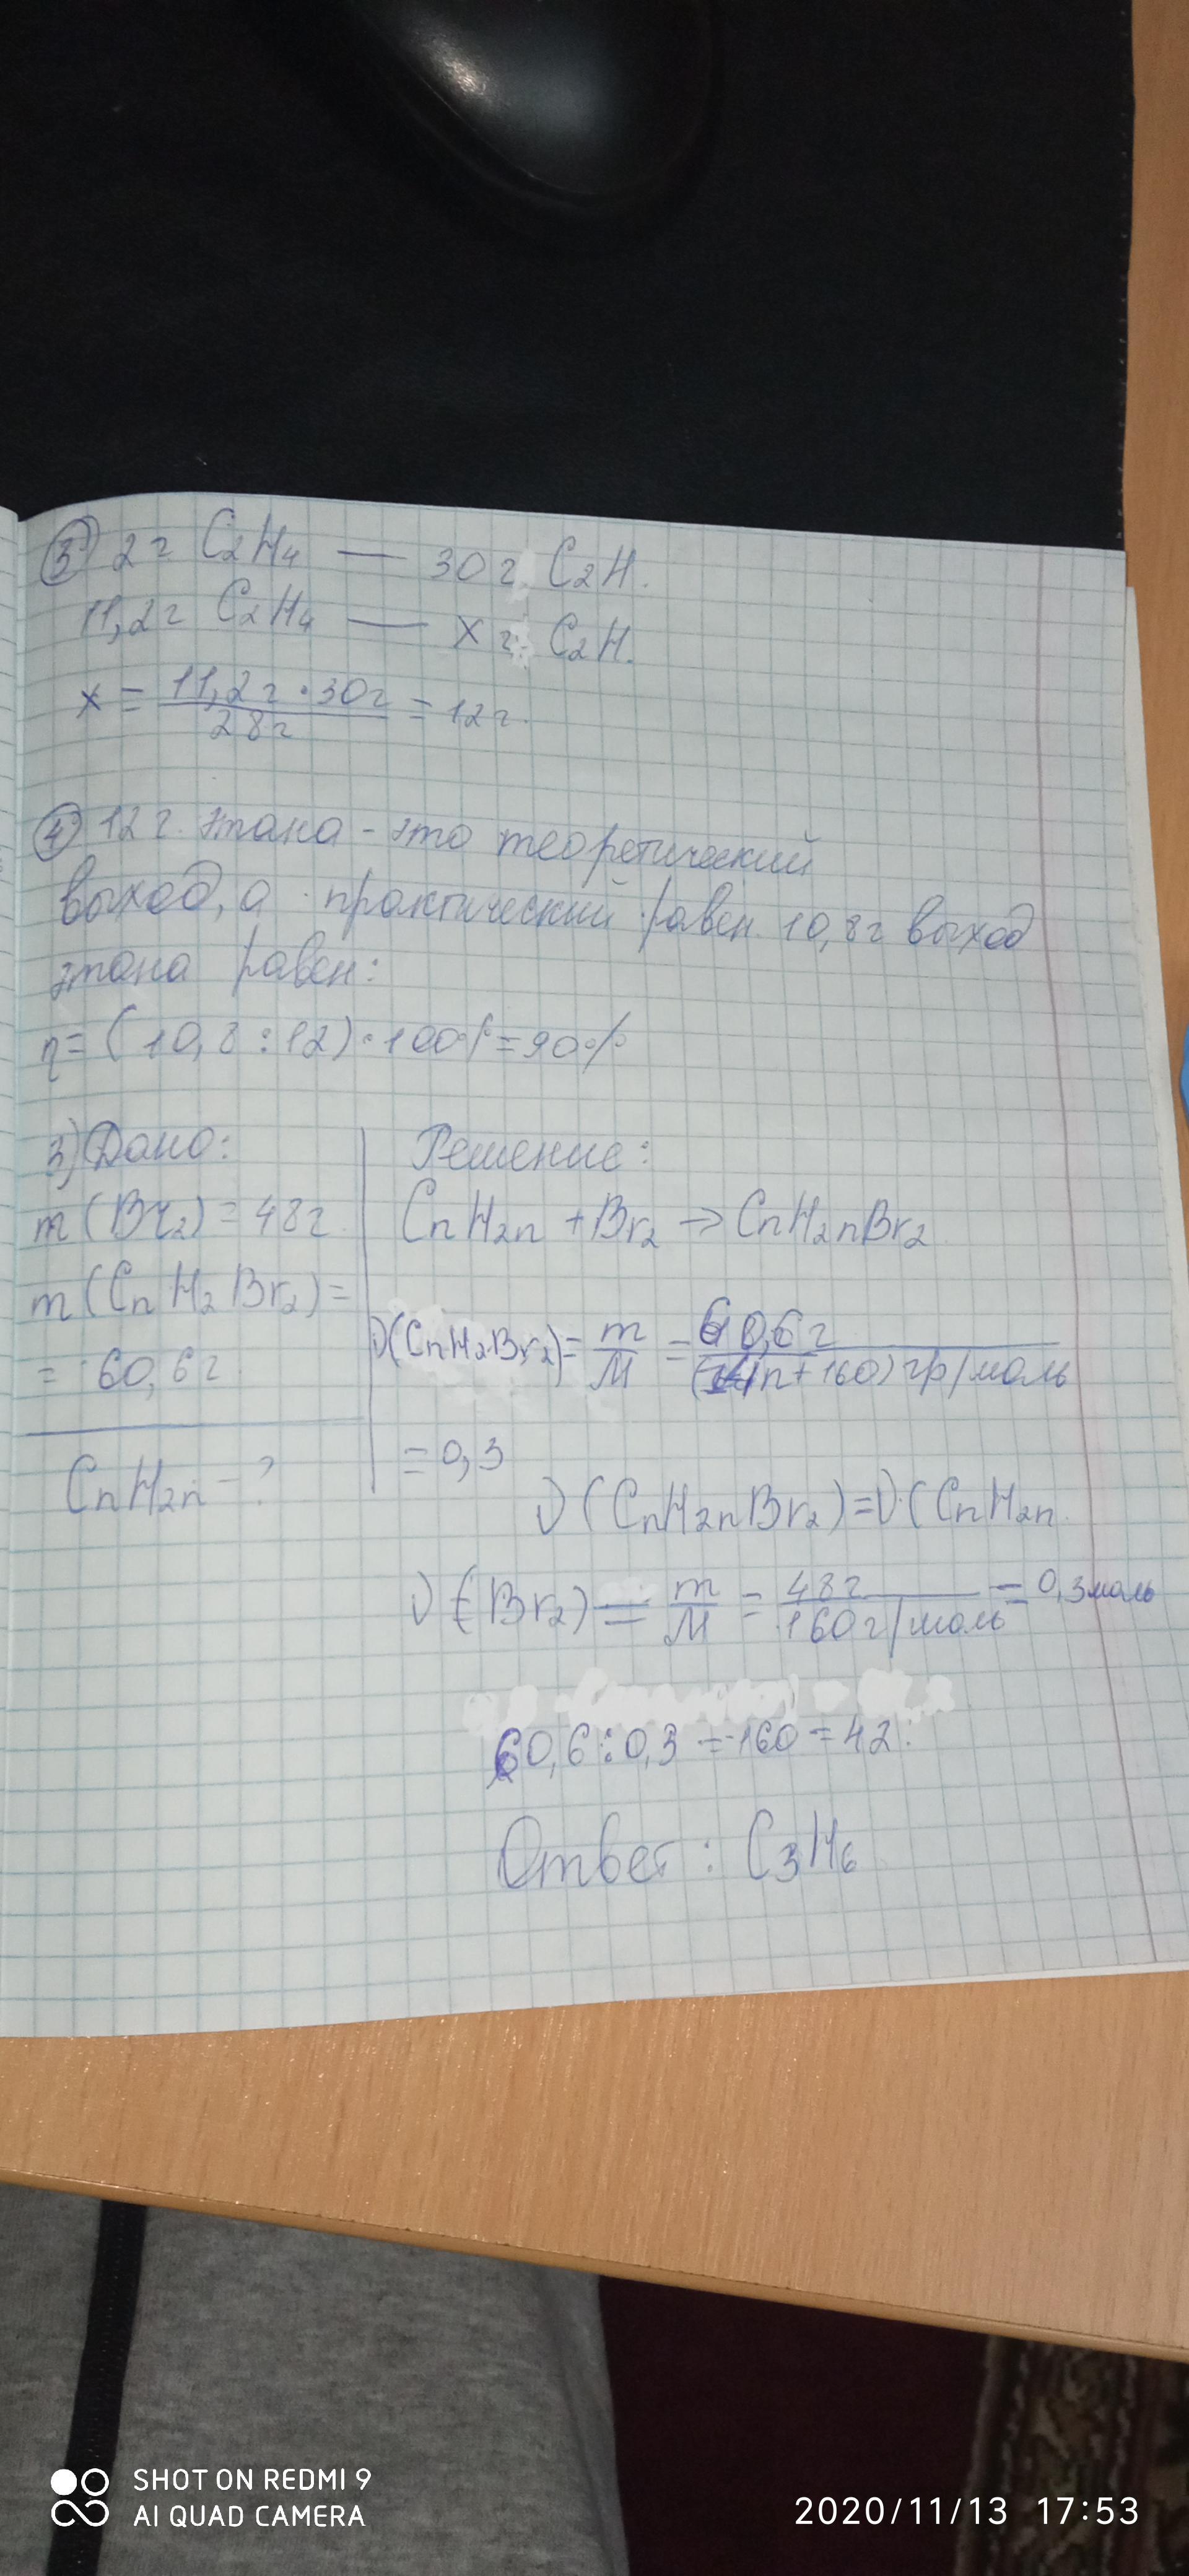 ③ 2г C₂H₄ — 30г C₂H.
11,2г C₂H₄ — xг C₂H.
x = 11,2г · 30г / 28г = 12г.
④ 12г. этана - это теоретический
выход, а практический равен 10,8г выход
этана равен:
η = (10,8 : 12) · 100% = 90%
3) Дано:
m(Br₂) = 48г
m(CnH₂Br₂) =
= 60,6г
CnH₂n - ?
Решение:
CnH₂n + Br₂ → CnH₂nBr₂
ν(CnH₂Br₂) = m/M = 60,6г / (14n + 160) гр/моль
= 0,3
ν(CnH₂nBr₂) = ν(CnH₂n
ν(Br₂) = m/M = 48г / 160г/моль = 0,3моль
60,6 : 0,3 = -160 = 42.
Ответ: C₃H₆
SHOT ON REDMI 9
AI QUAD CAMERA
2020/11/13 17:53